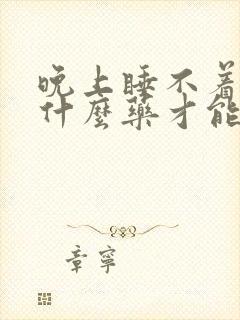 晚上睡不着
什麼藥才能
章寧